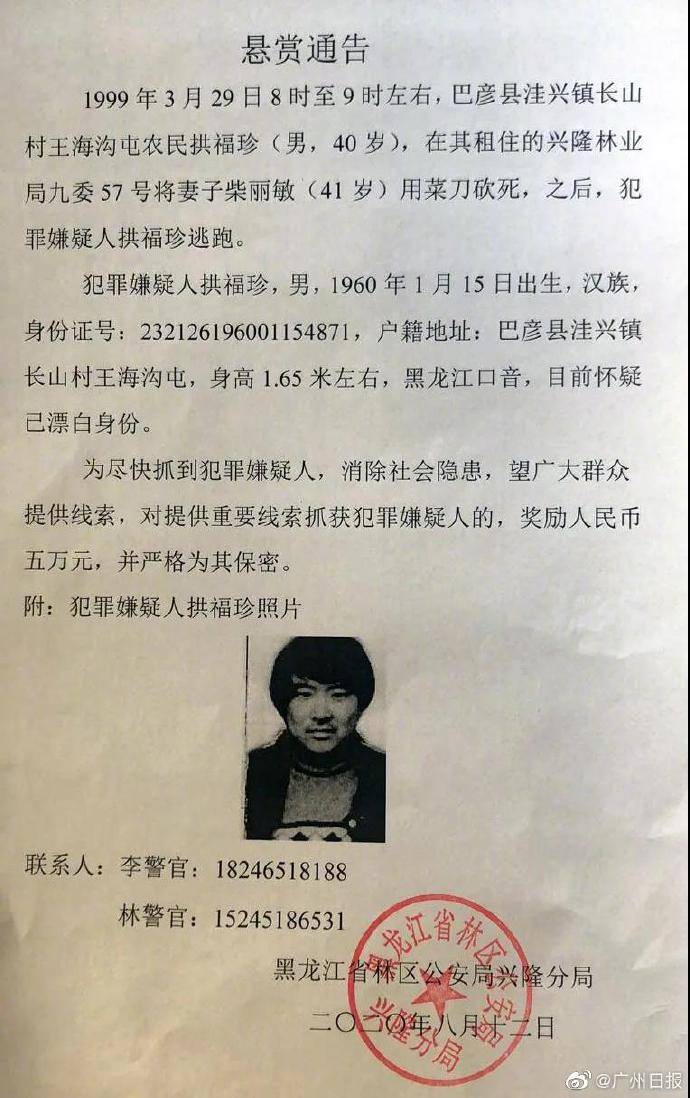 悬赏通告
1999年3月29日8时至9时左右，巴彦县洼兴镇长山
村王海沟屯农民拱福珍（男，40岁），在其租住的兴隆林业
局九委57号将妻子柴丽敏（41岁）用菜刀砍死，之后，犯
罪嫌疑人拱福珍逃跑。
犯罪嫌疑人拱福珍，男，1960年1月15日出生，汉族，
身份证号：232126196001154871，户籍地址：巴彦县洼兴镇
长山村王海沟屯，身高1.65米左右，黑龙江口音，目前怀疑
已漂白身份。
为尽快抓到犯罪嫌疑人，消除社会隐患，望广大群众
提供线索，对提供重要线索抓获犯罪嫌疑人的，奖励人民币
五万元，并严格为其保密。
附：犯罪嫌疑人拱福珍照片
联系人：李警官：18246518188
林警官：15245186531
黑龙江省林区公安局兴隆分局
二〇二〇年八月十二日
黑龙江省林区公安局
兴隆分局
@广州日报